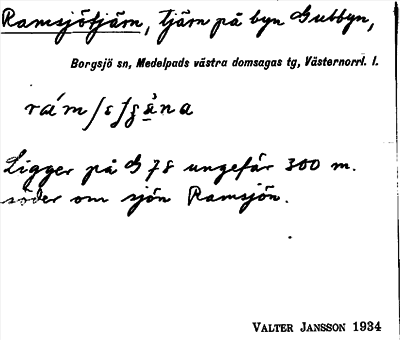 Ramsjötjärn, tjärn på byn Gubbyn,
Borgsjö sn, Medelpads västra domsagas tg, Västernorrl. l.
Ligger på G 78 ungefär 300 m.
söder om sjön Ramsjön.
VALTER JANSSON 1934